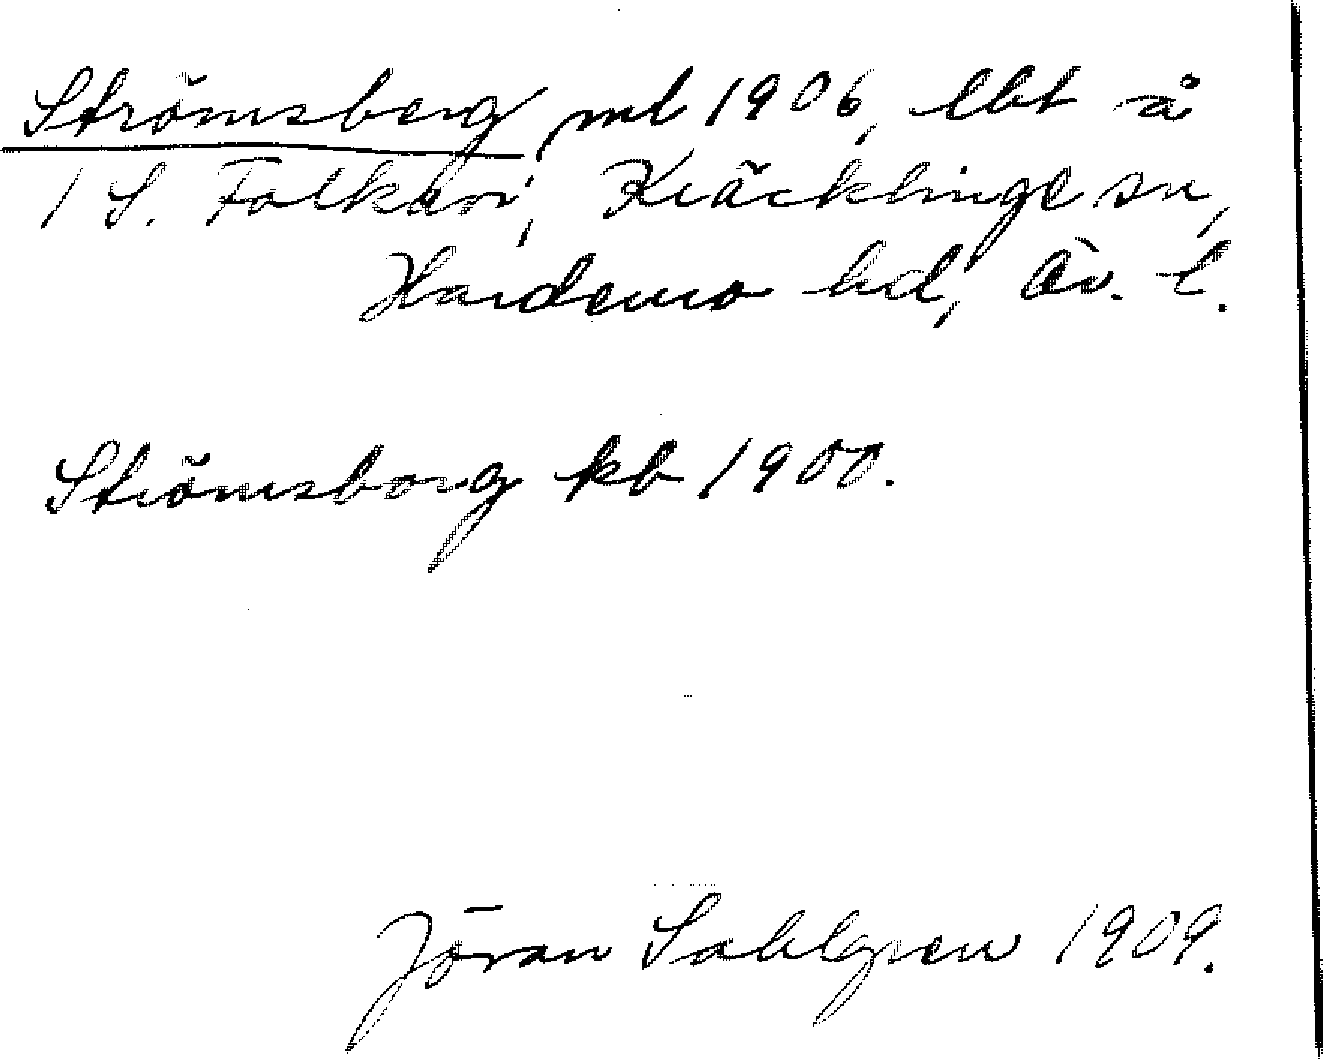 Strömsberg, ml 1906, lht å
1 S. Folkavi, Kräcklinge sn,
Hardemo hd, Ör. l.
Strömsborg kb 1900.
Jöran Sahlgren 1909.